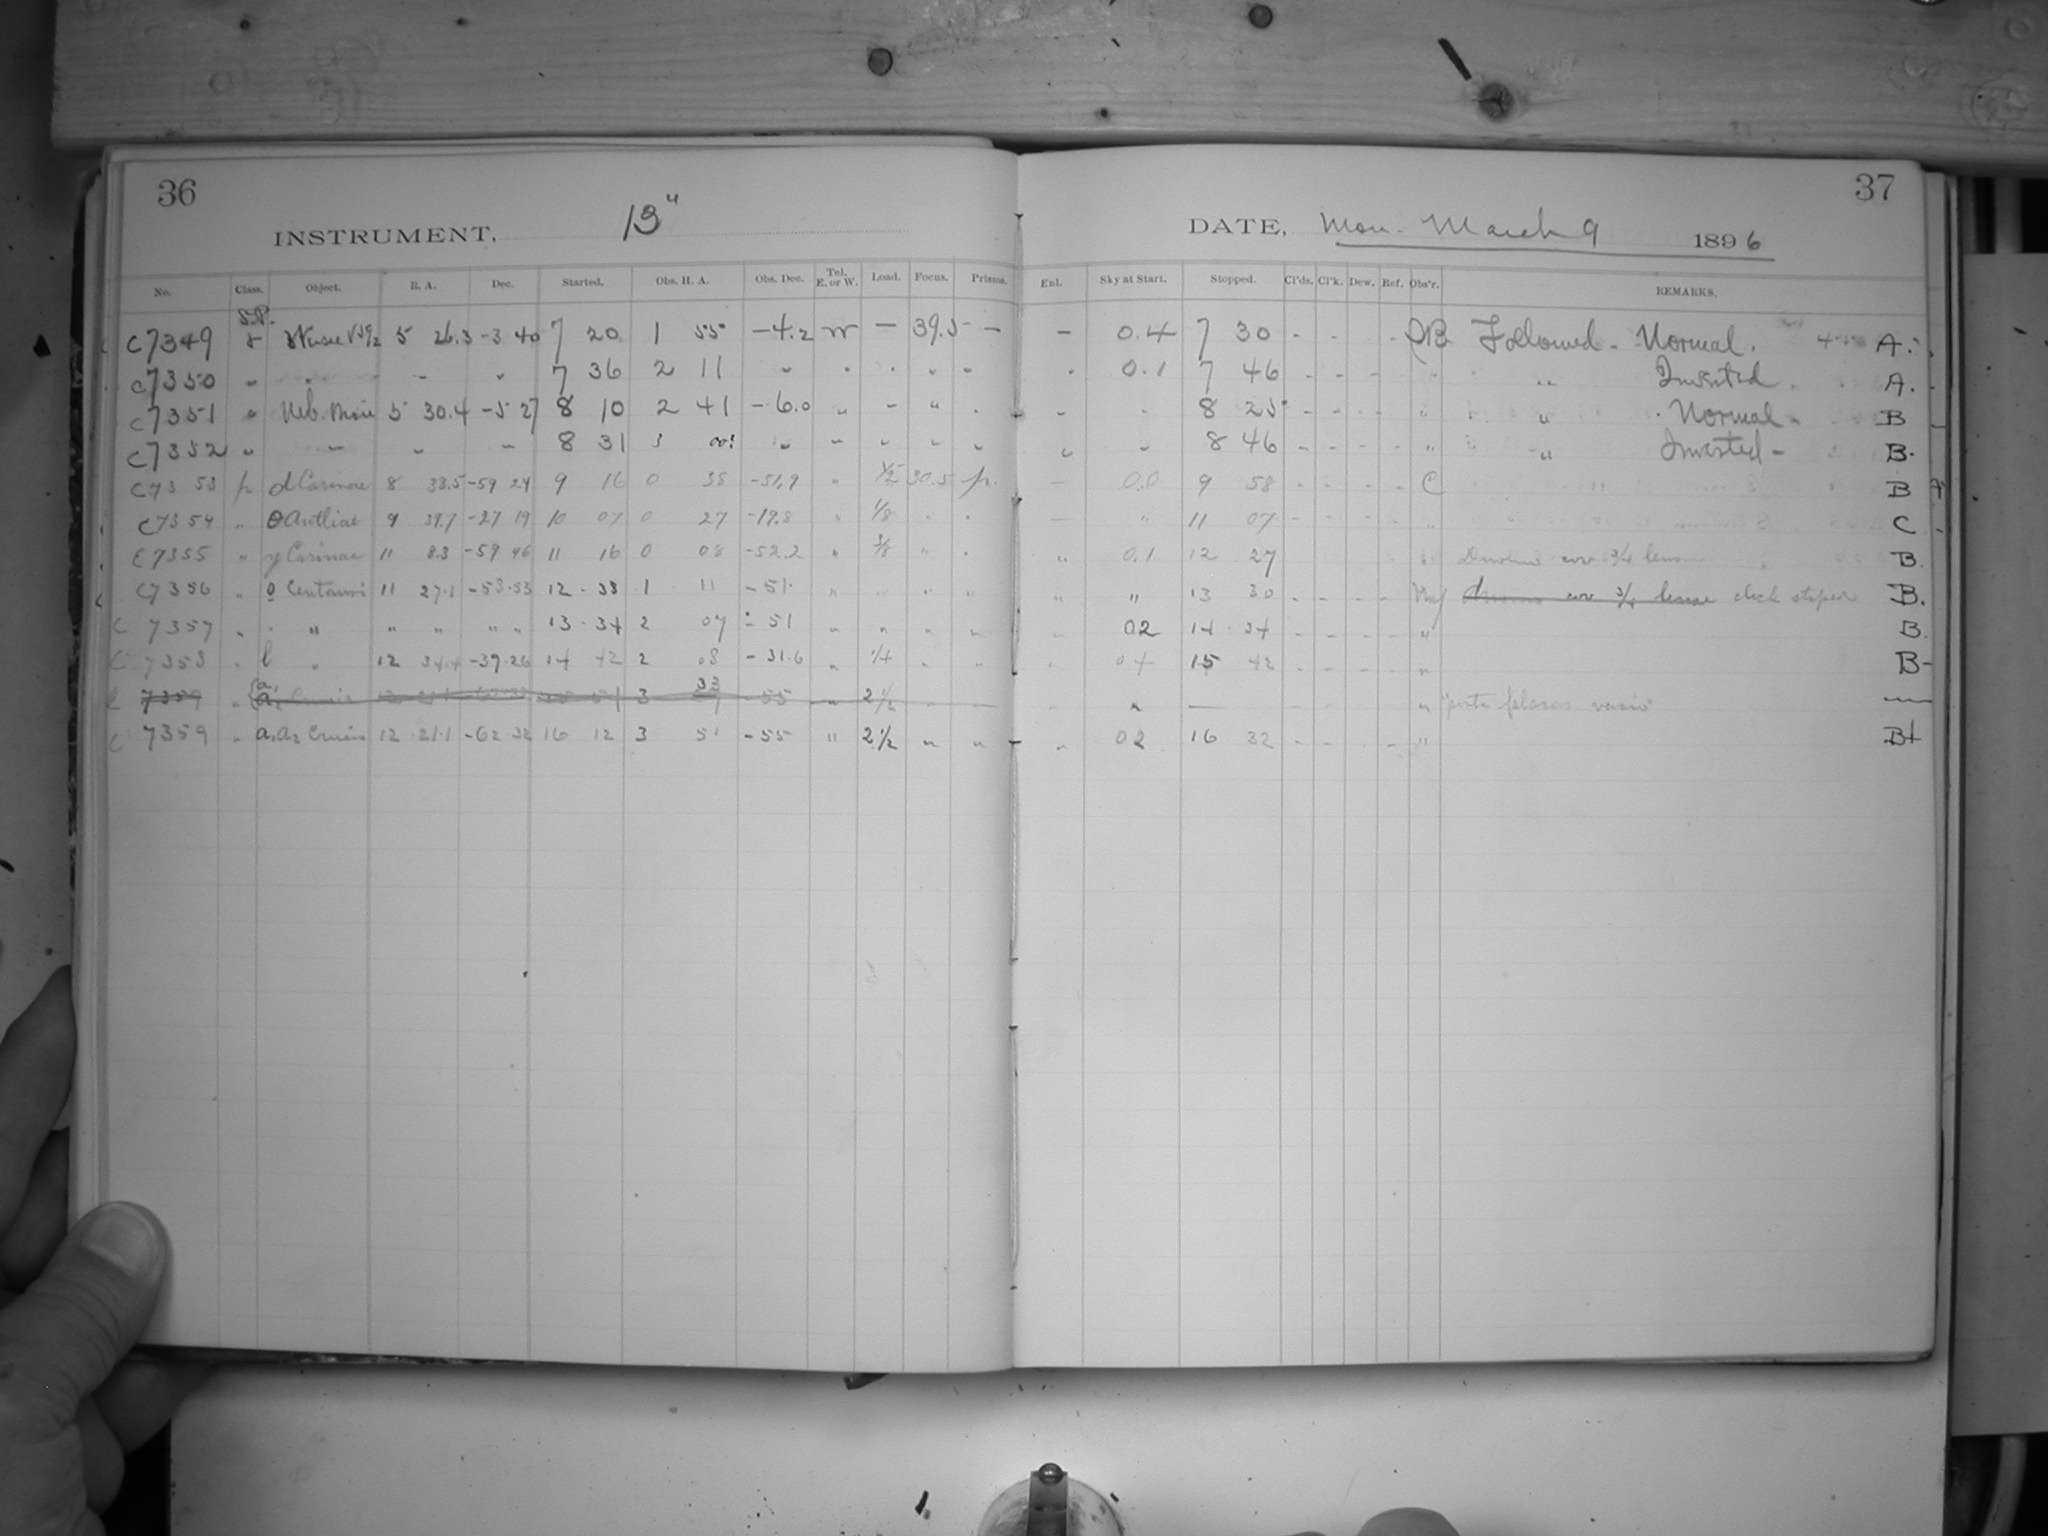 36
INSTRUMENT, 13"
No. Class. Object. R. A. Dec. Started. Obs. H. A. Obs. Dec. Tel. E. or W. Load. Focus. Prisms.
S.P.
C7349 5 26.3 -3 40 7 20 1 55 -4.2 W - 39.5 -
C7350 " " " " 7 36 2 11 " " " " "
C7351 " Neb. 5 30.4 -5 27 8 10 2 41 -6.0 " - " "
C7352 " " " " 8 31 3 " " " " "
C7353 p d Carinae 8 38.5 -59 24 9 16 0 38 -51.9 " 1/2 30.5 pr.
C7354 " θ Antliae 9 39.7 -27 19 10 07 0 27 -19.8 " 1/8 " "
C7355 " y Carinae 11 8.3 -59 46 11 16 0 08 -52.2 " " "
C7356 " o Centauri 11 27.1 -53.53 12 . 38 1 11 -51. " " " "
C 7357 " " " " " " 13 . 34 2 07 - 51 " " " "
C 7358 " l " 12 34.4 -39.26 14 42 2 08 - 31.6 " " "
C 7359 " Crucis 3 33 -55 " 2 1/2 " -
C 7359 " a1 a2 Crucis 12 21.1 -62 32 16 12 3 51 - 55 " 2 1/2 " "
37
DATE, Mon. March 9 1896
Enl. Sky at Start. Stopped. Cl'ds. Cl'k. Dew. Ref. Obs'r. REMARKS.
- 0.4 7 30 - - - Followed - Normal. A.
" 0.1 7 46 - - - " " Inverted. A.
" " 8 25 - - - " " Normal - B
" " 8 46 - - - - " " Inverted - B.
- 0.0 9 58 - - - - C " B
- " 11 07 - - - - " C
" 0.1 12 27 " 3/4 B.
" " 13 30 - - - - 3/4 click B.
" 02 14 . 34 - - - - " B.
" 04 15 42 - - - - " B-
" " — " —
" 02 16 32 - - - " B+